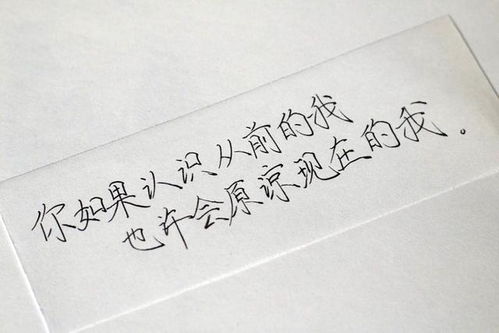 你如果认识从前的我
也许会原谅现在的我。